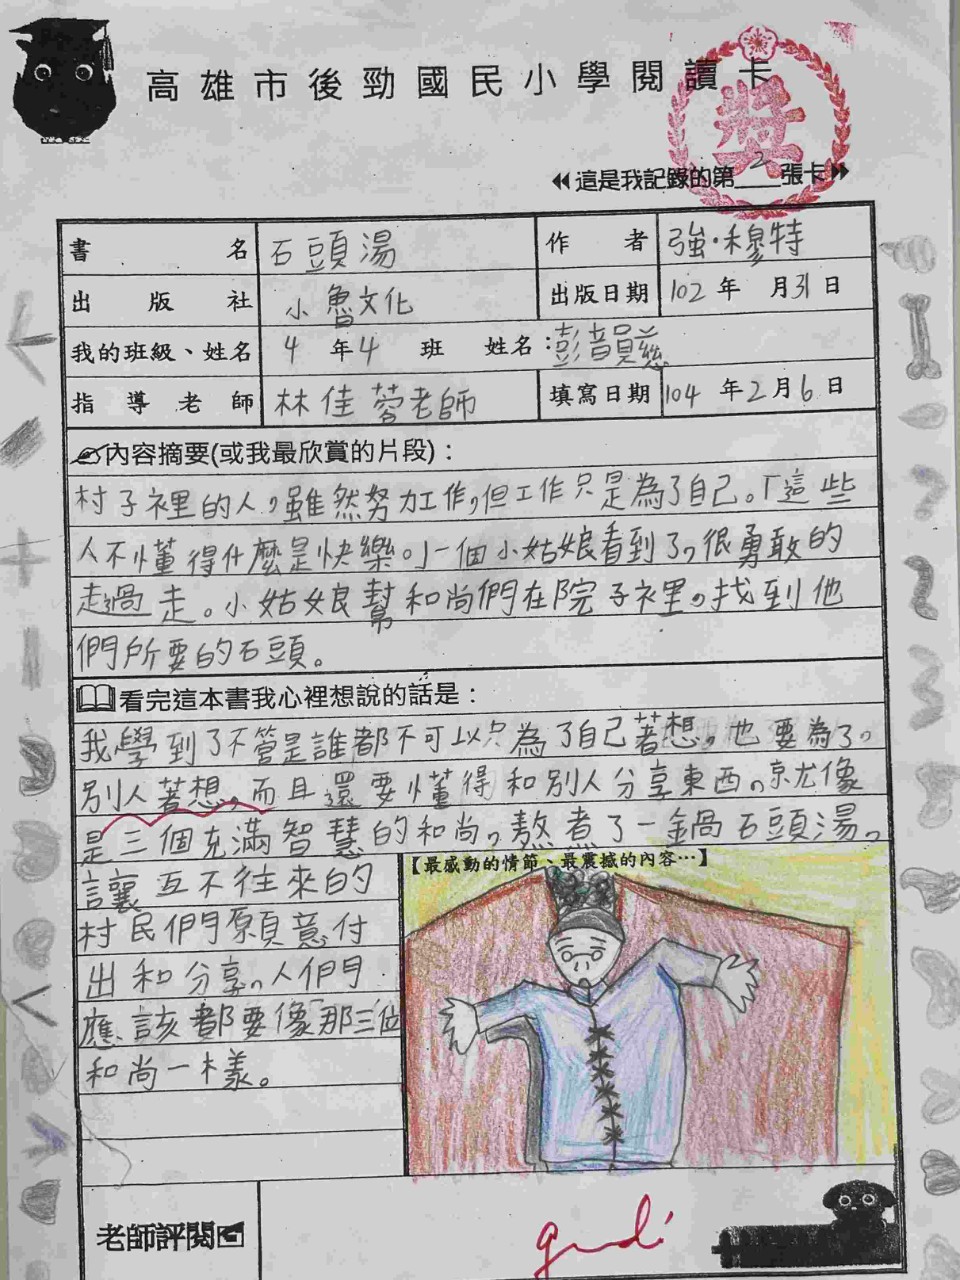 高雄市後勁國民小學閱讀卡
獎
這是我記錄的第2張卡
書名 石頭湯 作者 強·穆特
出版社 小魯文化 出版日期 102年 月31日
我的班級、姓名 4年4班 姓名:彭韻慈
指導老師 林佳蓉老師 填寫日期 104年2月6日
內容摘要(或我最欣賞的片段):
村子裡的人,雖然努力工作,但工作只是為了自己。「這些
人不懂得什麼是快樂。」一個小姑娘看到了,很勇敢的
走過走。小姑娘幫和尚們在院子裡,找到他
們所要的石頭。
看完這本書我心裡想說的話是:
我學到了不管是誰都不可以只為了自己著想,也要為了。
別人著想,而且還要懂得和別人分享東西,就像
是三個充滿智慧的和尚,熬煮了一鍋石頭湯,
讓互不往來的
村民們願意付
出和分享,人們
應該都要像那三位
和尚一樣。
【最感動的情節、最震撼的內容…】
老師評閱
good!